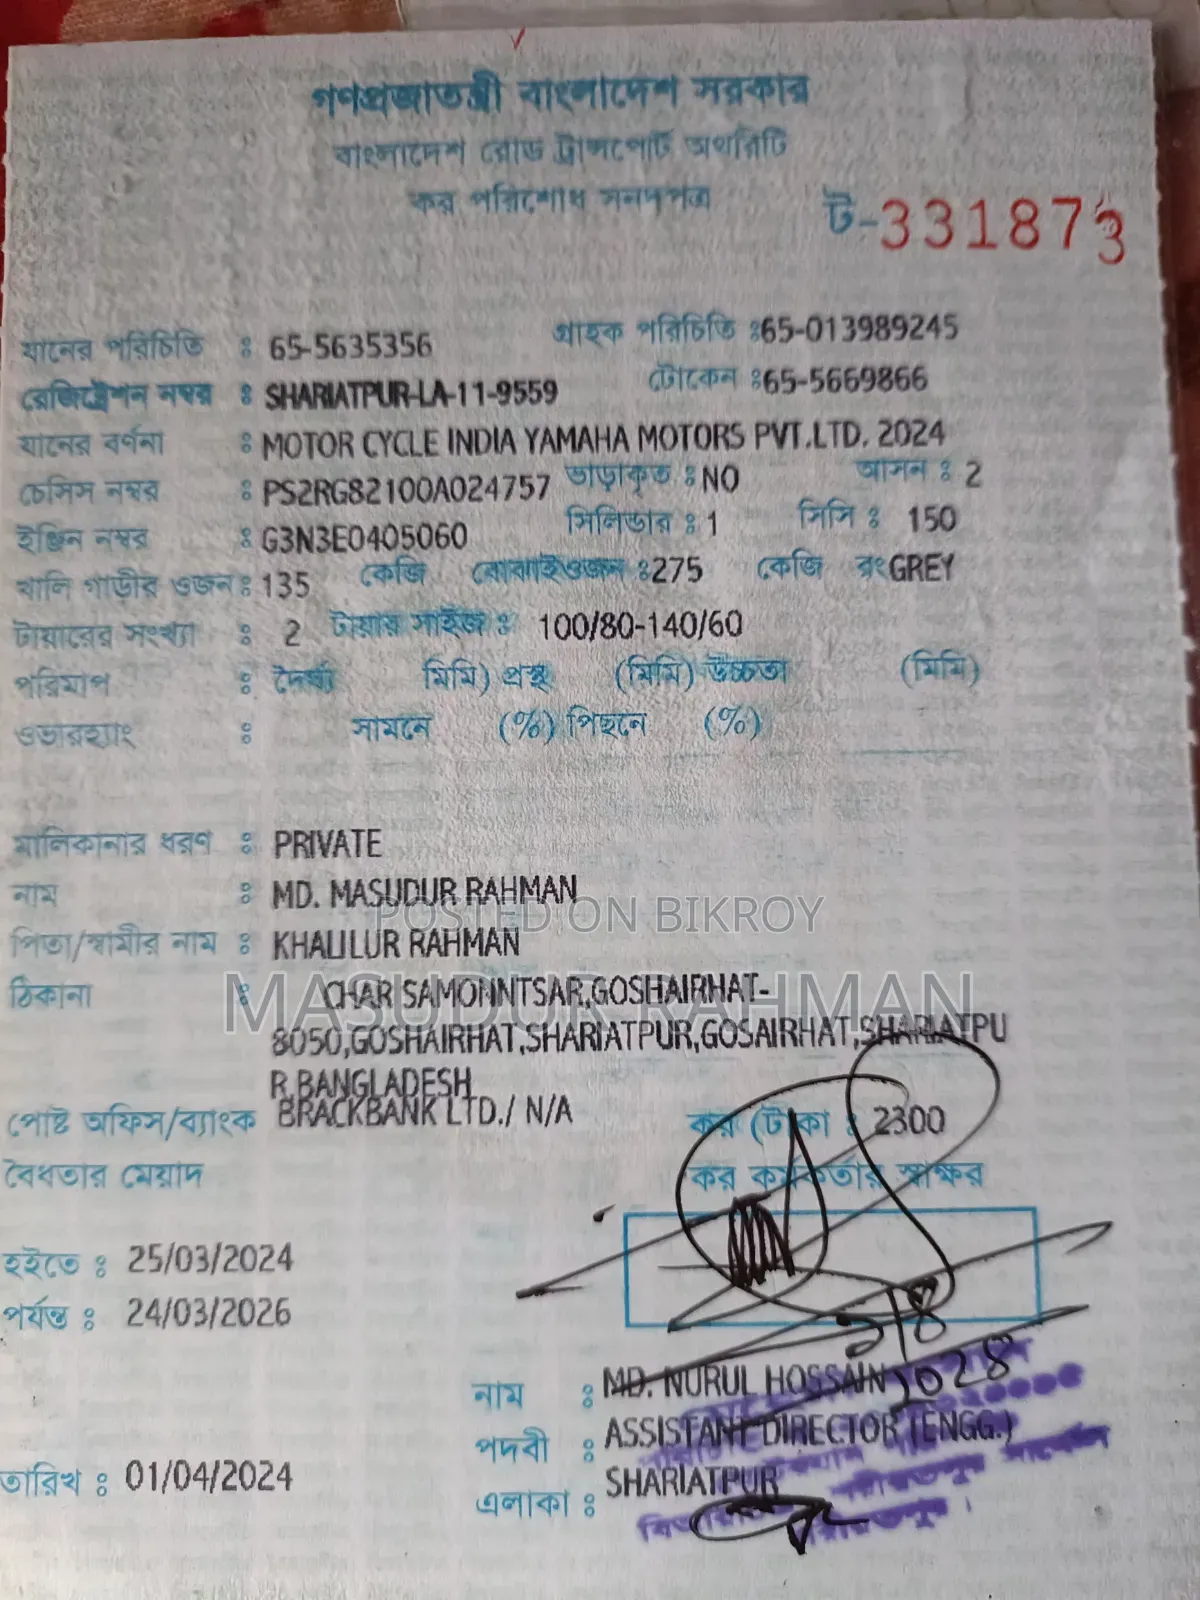 গণপ্রজাতন্ত্রী বাংলাদেশ সরকার
বাংলাদেশ রোড ট্রান্সপোর্ট অথরিটি
কর পরিশোধ সনদপত্র
ট-331873
যানের পরিচিতি : 65-5635356 গ্রাহক পরিচিতি :65-013989245
রেজিষ্ট্রেশন নম্বর : SHARIATPUR-LA-11-9559 টোকেন :65-5669866
যানের বর্ণনা : MOTOR CYCLE INDIA YAMAHA MOTORS PVT.LTD. 2024
চেসিস নম্বর : PS2RG82100A024757 ভাড়াকৃত : NO আসন : 2
ইঞ্জিন নম্বর : G3N3E0405060 সিলিন্ডার : 1 সিসি : 150
খালি গাড়ীর ওজন : 135 কেজি বোঝাইওজন :275 কেজি রংGREY
টায়ারের সংখ্যা : 2 টায়ার সাইজ : 100/80-140/60
পরিমাপ : দৈর্ঘ্য মিমি) প্রস্থ (মিমি) উচ্চতা (মিমি)
ওভারহ্যাং : সামনে (%) পিছনে (%)
মালিকানার ধরণ : PRIVATE
নাম : MD. MASUDUR RAHMAN
POSTED ON BIKROY
পিতা/স্বামীর নাম : KHALILUR RAHMAN
MASUDUR RAHMAN
ঠিকানা : CHAR SAMONNTSAR,GOSHAIRHAT-
8050,GOSHAIRHAT,SHARIATPUR,GOSAIRHAT,SHARIATPU
R,BANGLADESH
পোষ্ট অফিস/ব্যাংক BRACKBANK LTD./ N/A কর (টাকা : 2300
বৈধতার মেয়াদ কর কর্মকর্তার স্বাক্ষর
হইতে : 25/03/2024
পর্যন্ত : 24/03/2026
নাম : MD. NURUL HOSSAIN
পদবী : ASSISTANT DIRECTOR (ENGG.)
তারিখ : 01/04/2024
এলাকা : SHARIATPUR